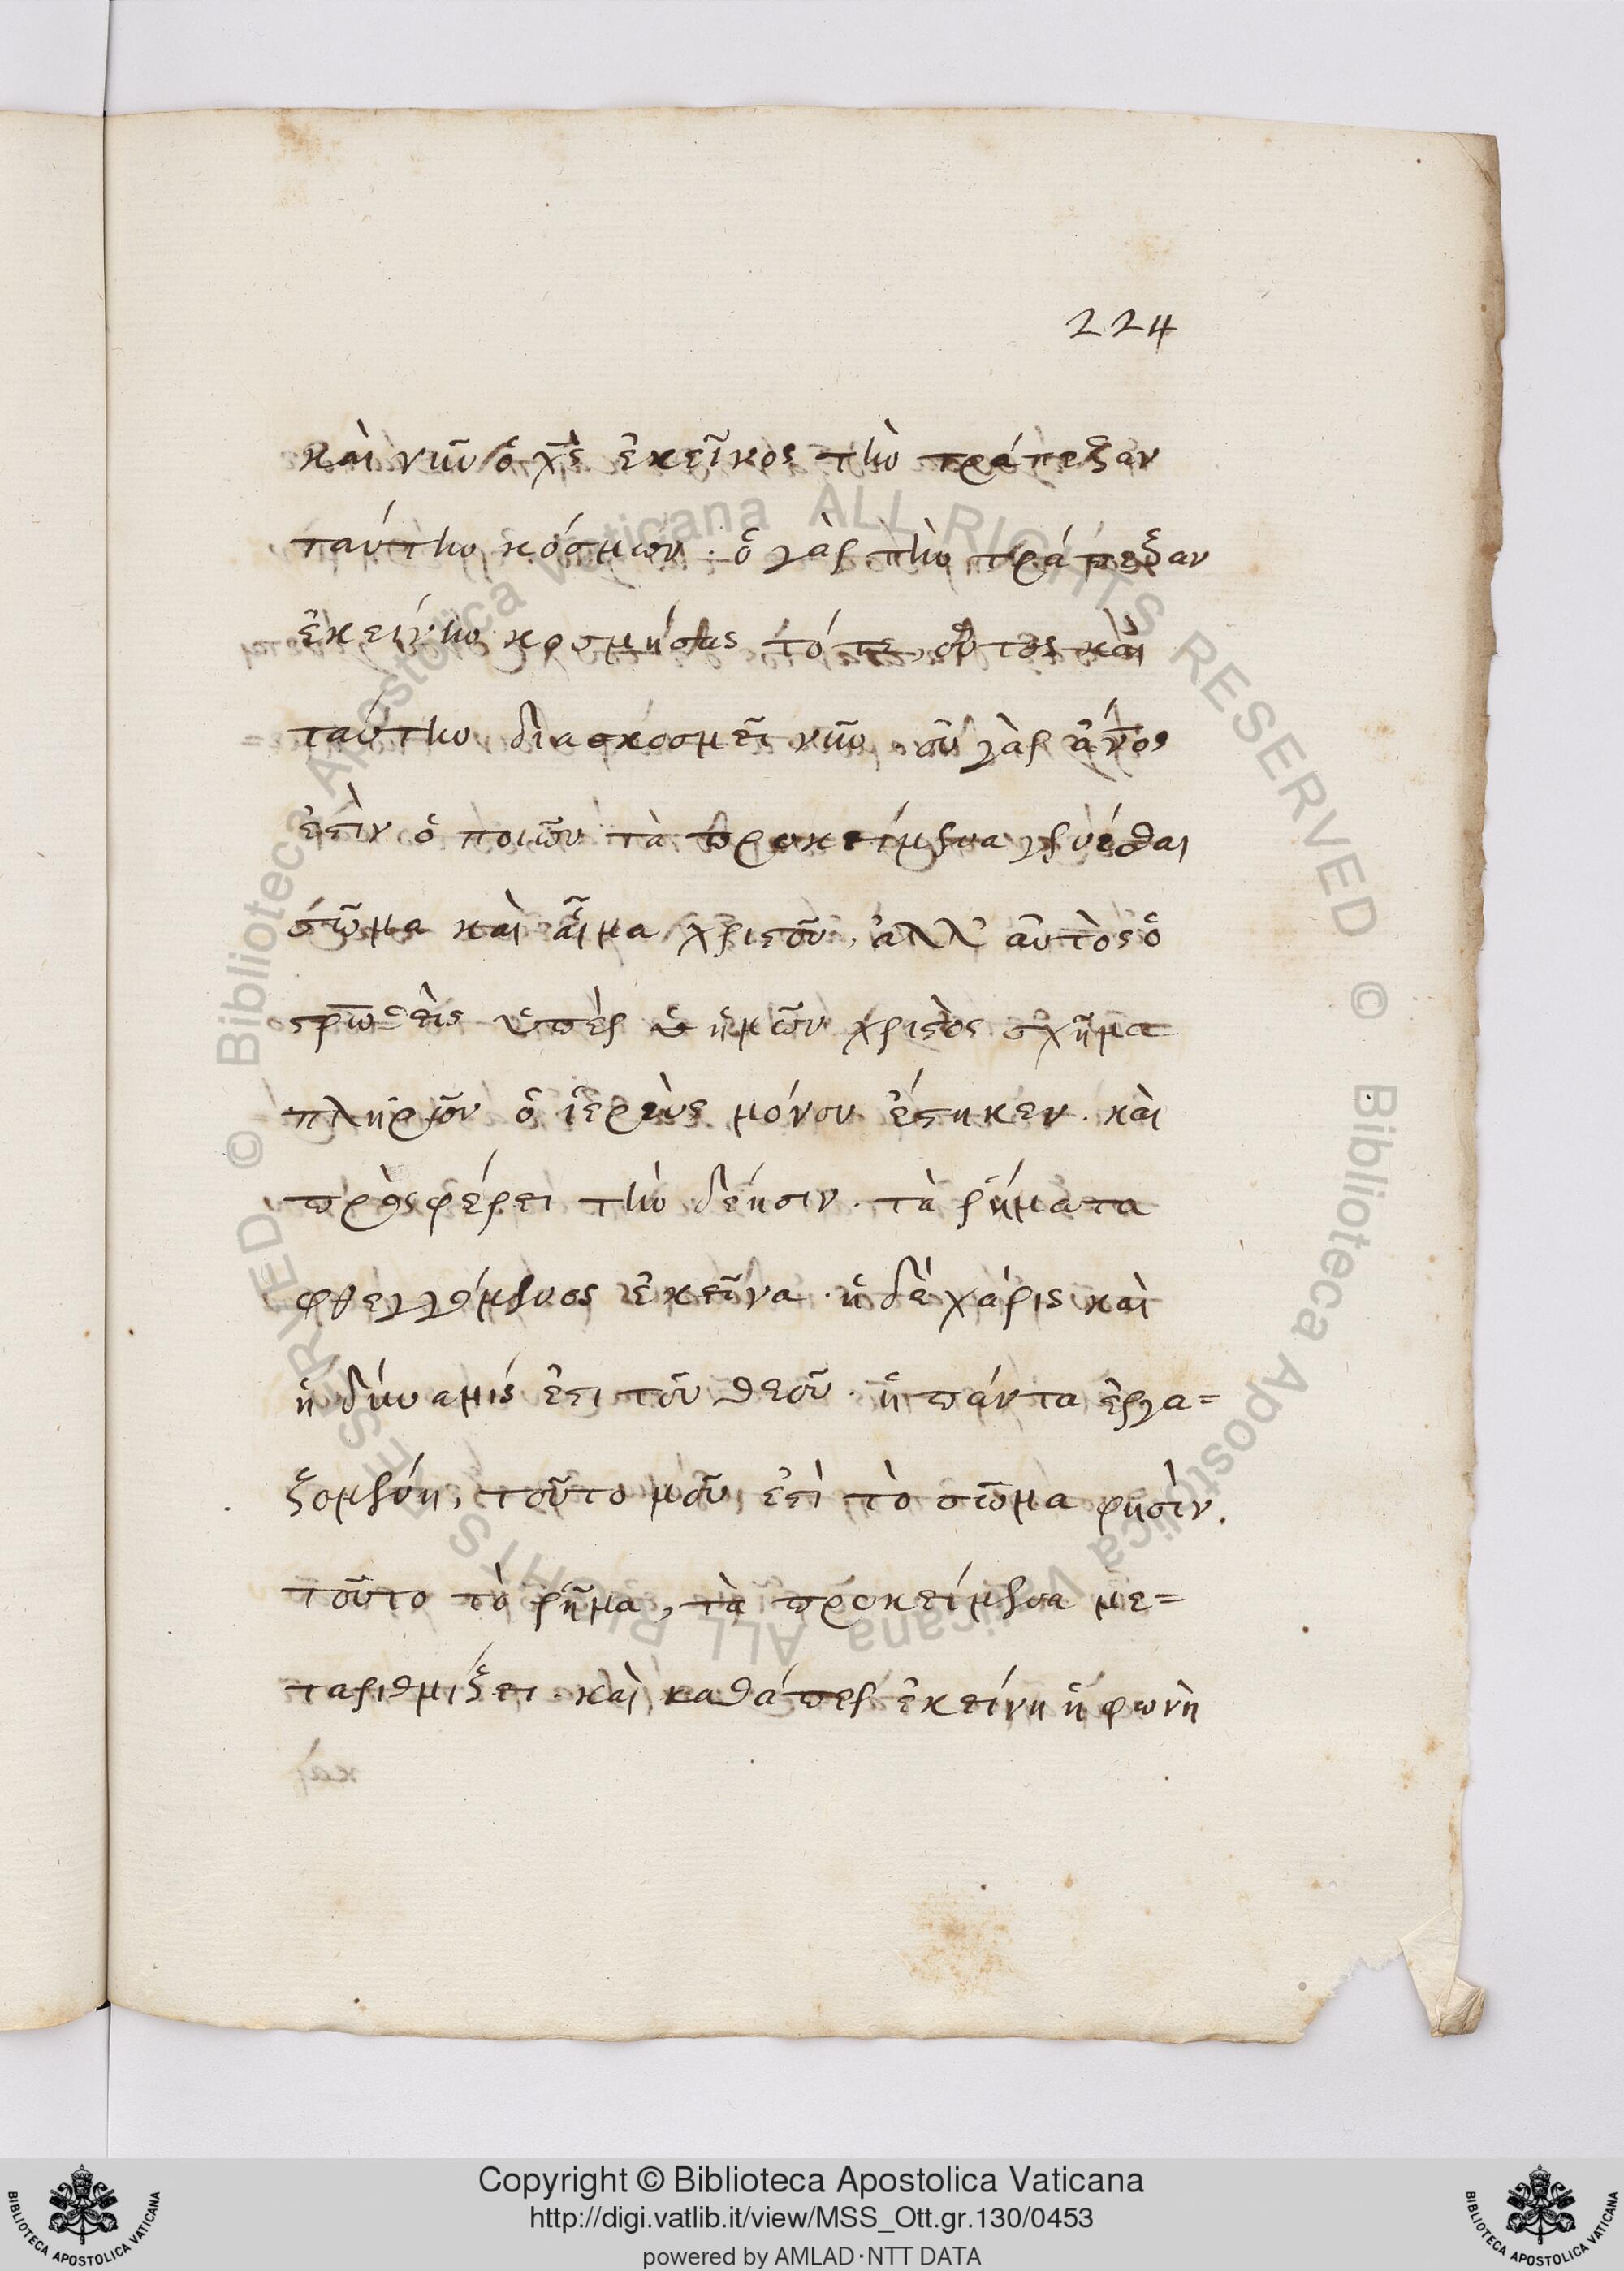 224
καὶ νῦν ὁ χ̅ς̅ ἐκεῖνος τὴν τράπεζαν
ταύτην κόσμων. ὁ γὰρ τὴν τράπεζαν
ἐκείνην κοσμήσας τότε, οὗτος καὶ
ταύτην διακοσμεῖ νῦν. οὐ γὰρ ἄν̅ο̅ς
ἐστὶν ὁ ποιῶν τὰ προκείμενα γενέσθαι
σῶμα καὶ αἷμα χριστοῦ, ἀλλ' αὐτὸς ὁ
στρωθεὶς ὑπὲρ ἡμῶν χριστὸς σχῆμα
πληρῶν ὁ ἱερεὺς μόνον ἕστηκεν. καὶ
προσφέρει τὴν δέησιν. τὰ ῥήματα
φθεγγόμενος ἐκεῖνα. ἡ δὲ χάρις καὶ
ἡ δύναμίς ἐστι τοῦ θεοῦ. ἡ πάντα ἐργα=
ζομένη, τοῦτο μοῦ ἐστὶ τὸ σῶμα φησὶν.
τοῦτο τὸ ῥῆμα, τὰ προκείμενα με=
ταριθμίζει. καὶ καθάπερ ἐκείνη ἡ φωνὴ
Copyright © Biblioteca Apostolica Vaticana
http://digi.vatlib.it/view/MSS_Ott.gr.130/0453
powered by AMLAD·NTT DATA
© Biblioteca Apostolica Vaticana ALL RIGHTS RESERVED
© Biblioteca Apostolica Vaticana ALL RIGHTS RESERVED
BIBLIOTECA APOSTOLICA VATICANA
BIBLIOTECA APOSTOLICA VATICANA